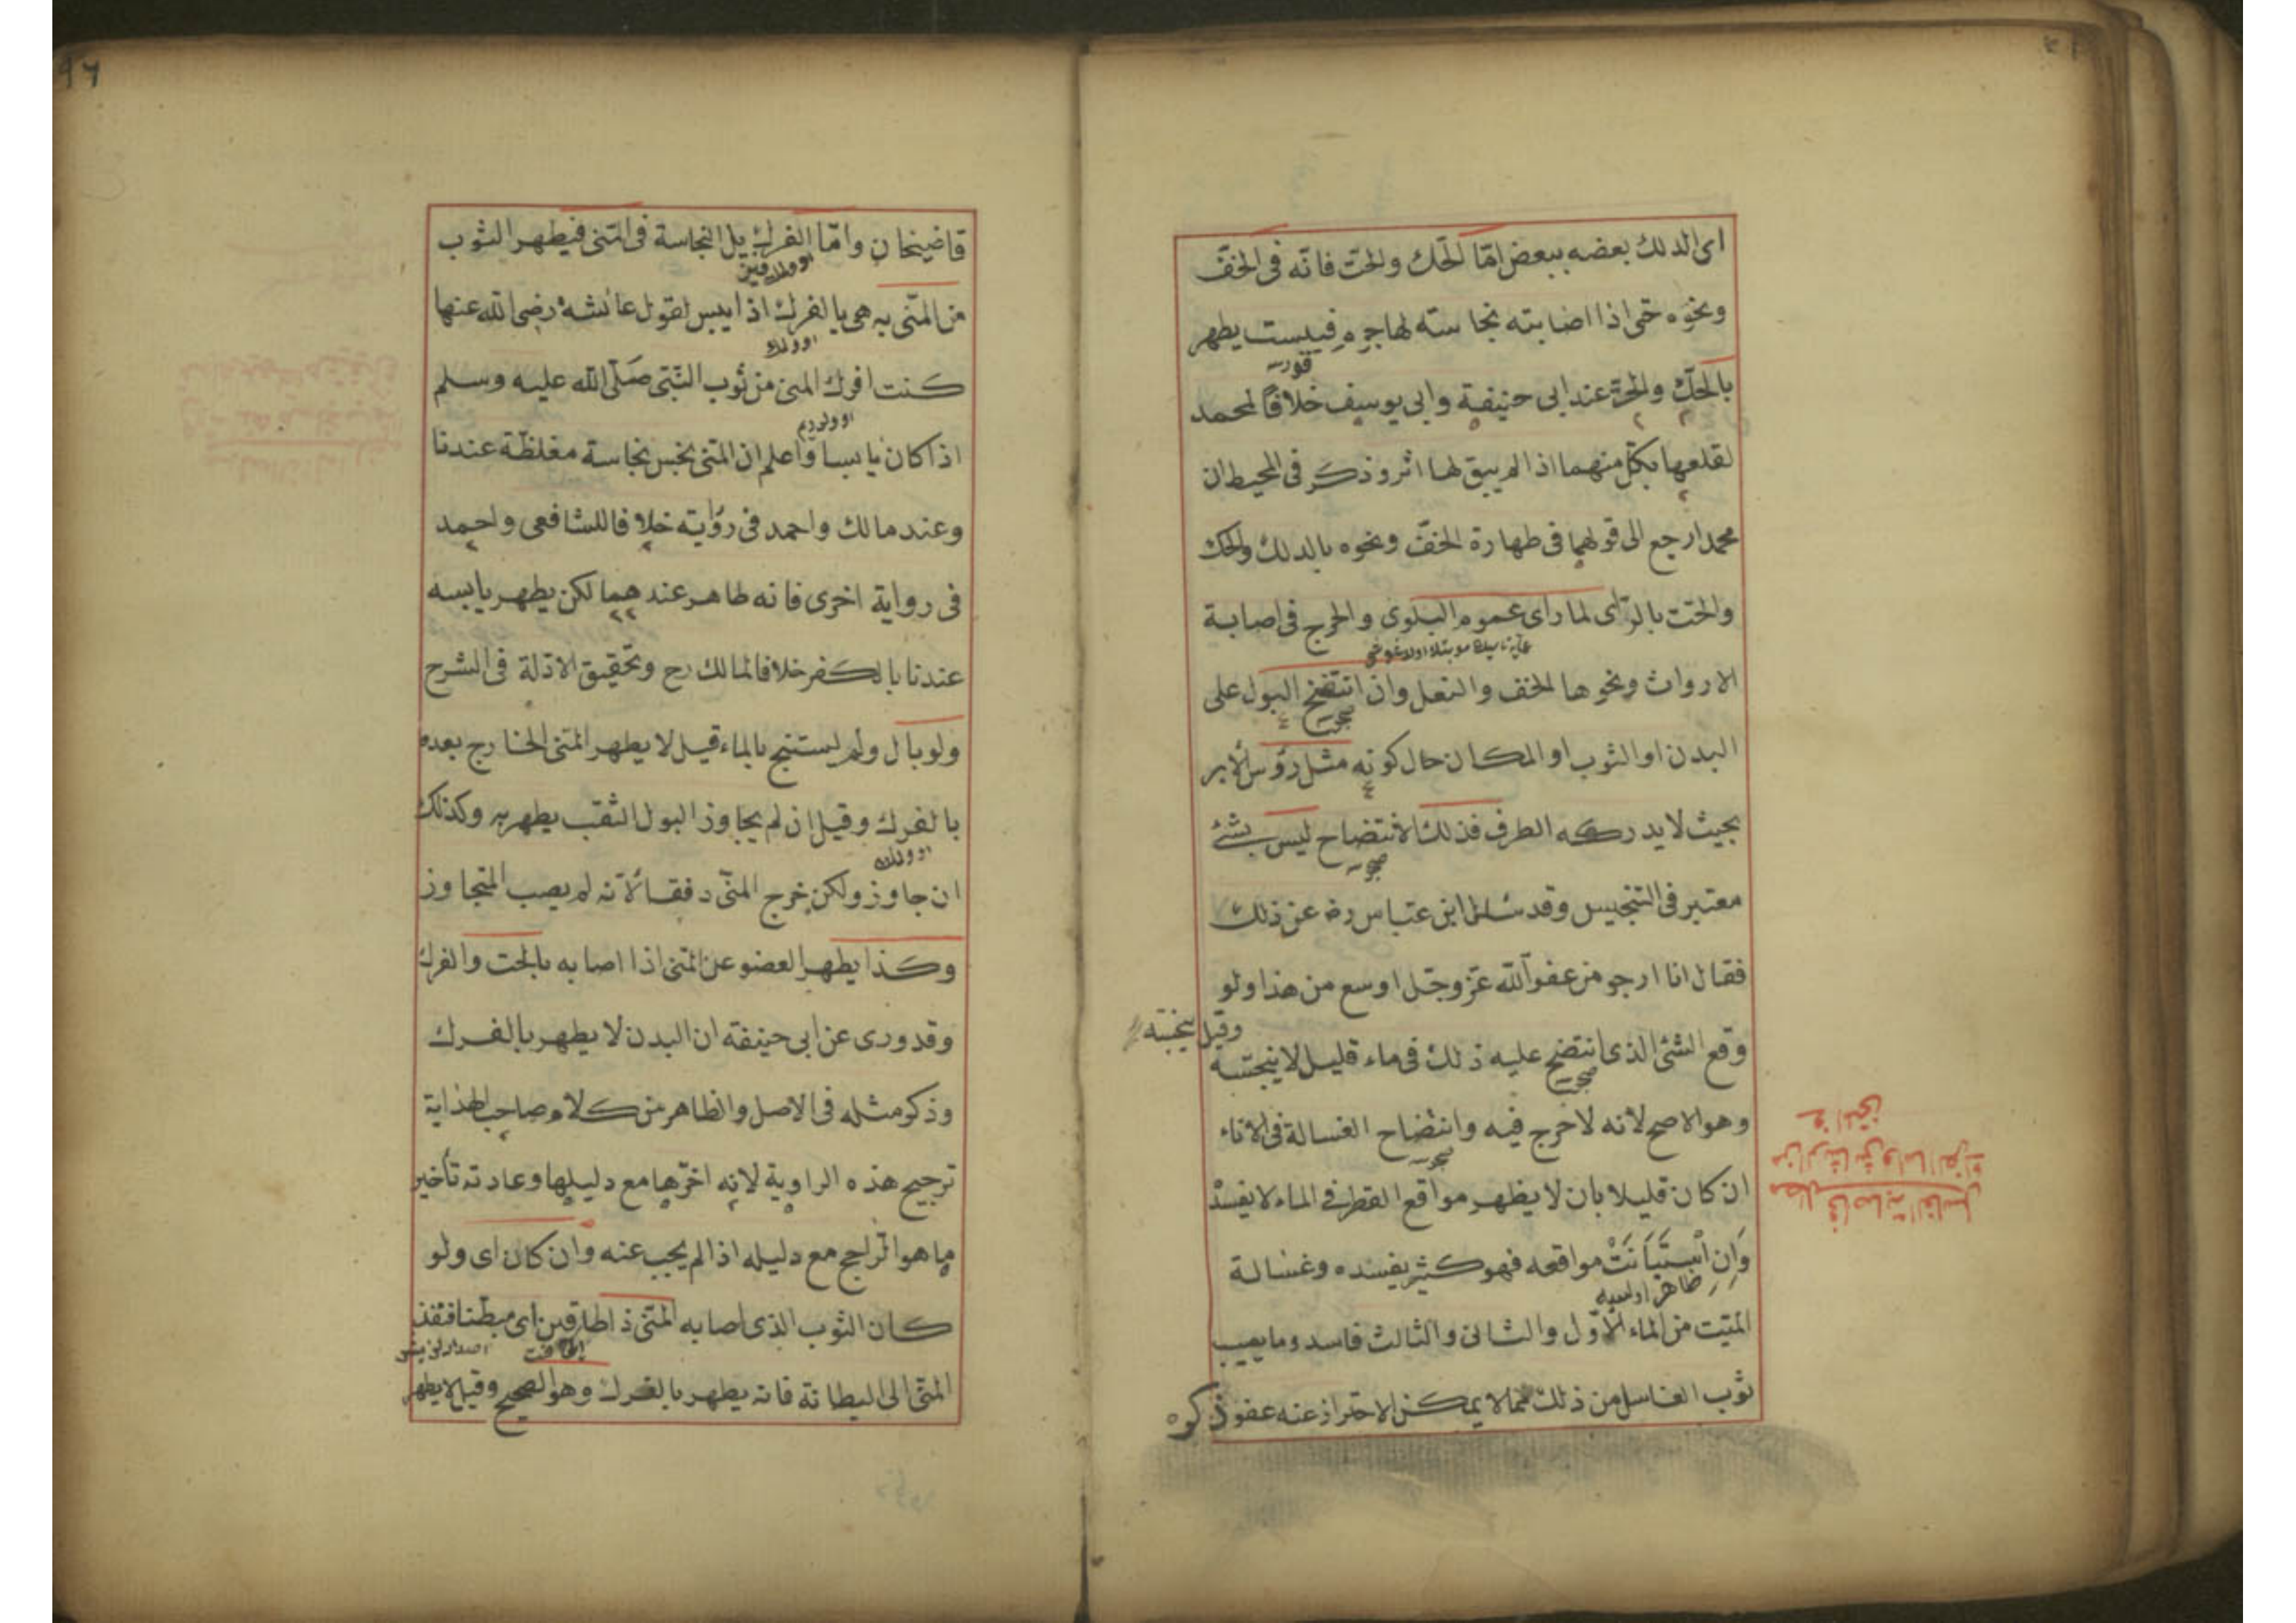 اى الدلك بعضه ببعض امّا الحك والحتّ فانّه فى الخفّ
ونحوه حتى اذا اصابته نجاسته لها جرم فيبست يطهر
بالحكّ والحتّ عند ابى حنيفة وابى يوسف خلافًا لمحمد
لقلعها بكل منهما اذا لم يبق لها اثر وذكر فى المحيط ان
محمدا رجع الى قولهما فى طهارة الخفّ ونحوه بالدلك والحك
والحتت بالرّاى لما راى عموم البلوى والحرج فى اصابة
الارواث ونحوها الخف والنعل وان انتضح البول على
البدن او الثوب او المكان حال كونه مثل رؤس الابر
بحيث لا يدركه الطرف فذلك الانتضاح ليس بشئ
معتبر فى التنجيس وقد سئل ابن عبّاس رضـ عن ذلك
فقال انا ارجو من عفو اللّه عزّ وجّل اوسع من هذا ولو
وقع الشئ الذى انتضح عليه ذلك فى ماء قليل لا ينجسه
وقيل ينجسه
وهو الاصح لانه لا حرج فيه وانتضاح الغسالة فى الاناء
ان كان قليلا بان لا يظهر مواقع القطر فى الماء لا يفسد
وَاِنِ اسْتَبَانَتْ مواقعه فهو كثير يفسده وغسالة
الميّت من الماء الاوّل والثانى والثالث فاسد وما يصيب
ثوب الغاسل من ذلك فما لا يمكن الاحتراز عنه عفو ذكره
٩٦
قاضيخان وامّا الفرك يزيل النجاسة فى المنى فيطهر الثوب
من المنّى به هى بالفرك اذا يبس لقول عائشة رضى الله عنها
اوولمك
كنت افرك المنى من ثوب النّبى صلّى الله عليه وسلم
اوولردم
اذا كان يابسا واعلم ان المنى نجس نجاسة مغلظّة عندنا
وعند مالك واحمد فى رؤايته خلافا للشافعى واحمد
فى رواية اخرى فانه طاهر عندهما لكن يطهر يابسه
عندنا بالكفر خلافا لمالك رح وتحقيق الادّلة فى الشرح
ولو بال ولم يستنج بالماء قيل لا يطهر المنى الخارج بعده
بالفرك وقيل ان لم يجاوز البول الثقب يطهر به وكذلك
ان جاوز ولكن خرج المنّى دفقا لانّه لم يصب المتجاوز
وكذا يطهر العضو عن المنى اذا اصابه بالحت والفرك
وقد ورى عن ابى حنيفه ان البدن لا يطهر بالفرك
وذكر مثله فى الاصل والظاهر من كلام صاحب الهداية
ترجيح هذه الراوية لانه اخّرها مع دليلها وعادته تأخير
ما هو الراجح مع دليله اذا لم يجب عنه وان كان اى ولو
كان الثوب الذى اصابه المنى ذا طاقين اى مبطّنا فنفذ
المنّى الى البطانة فانه يطهر بالفرك وهو الصحيح وقيل لا يطهر